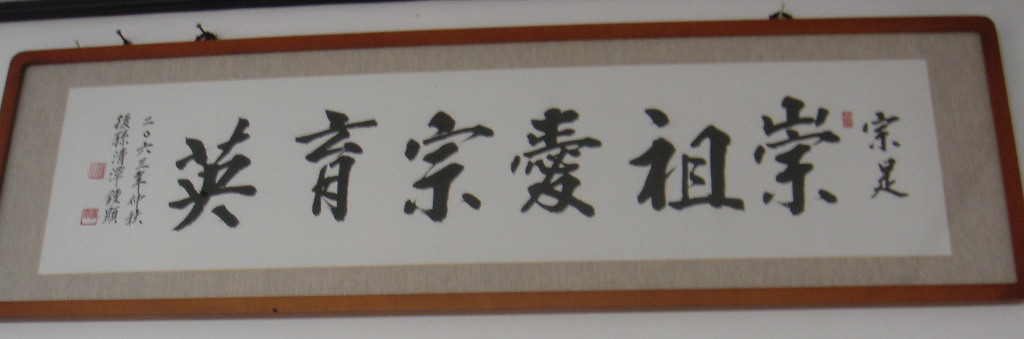 宗足
崇祖愛宗育英
二〇六三年仲秋
後孫清